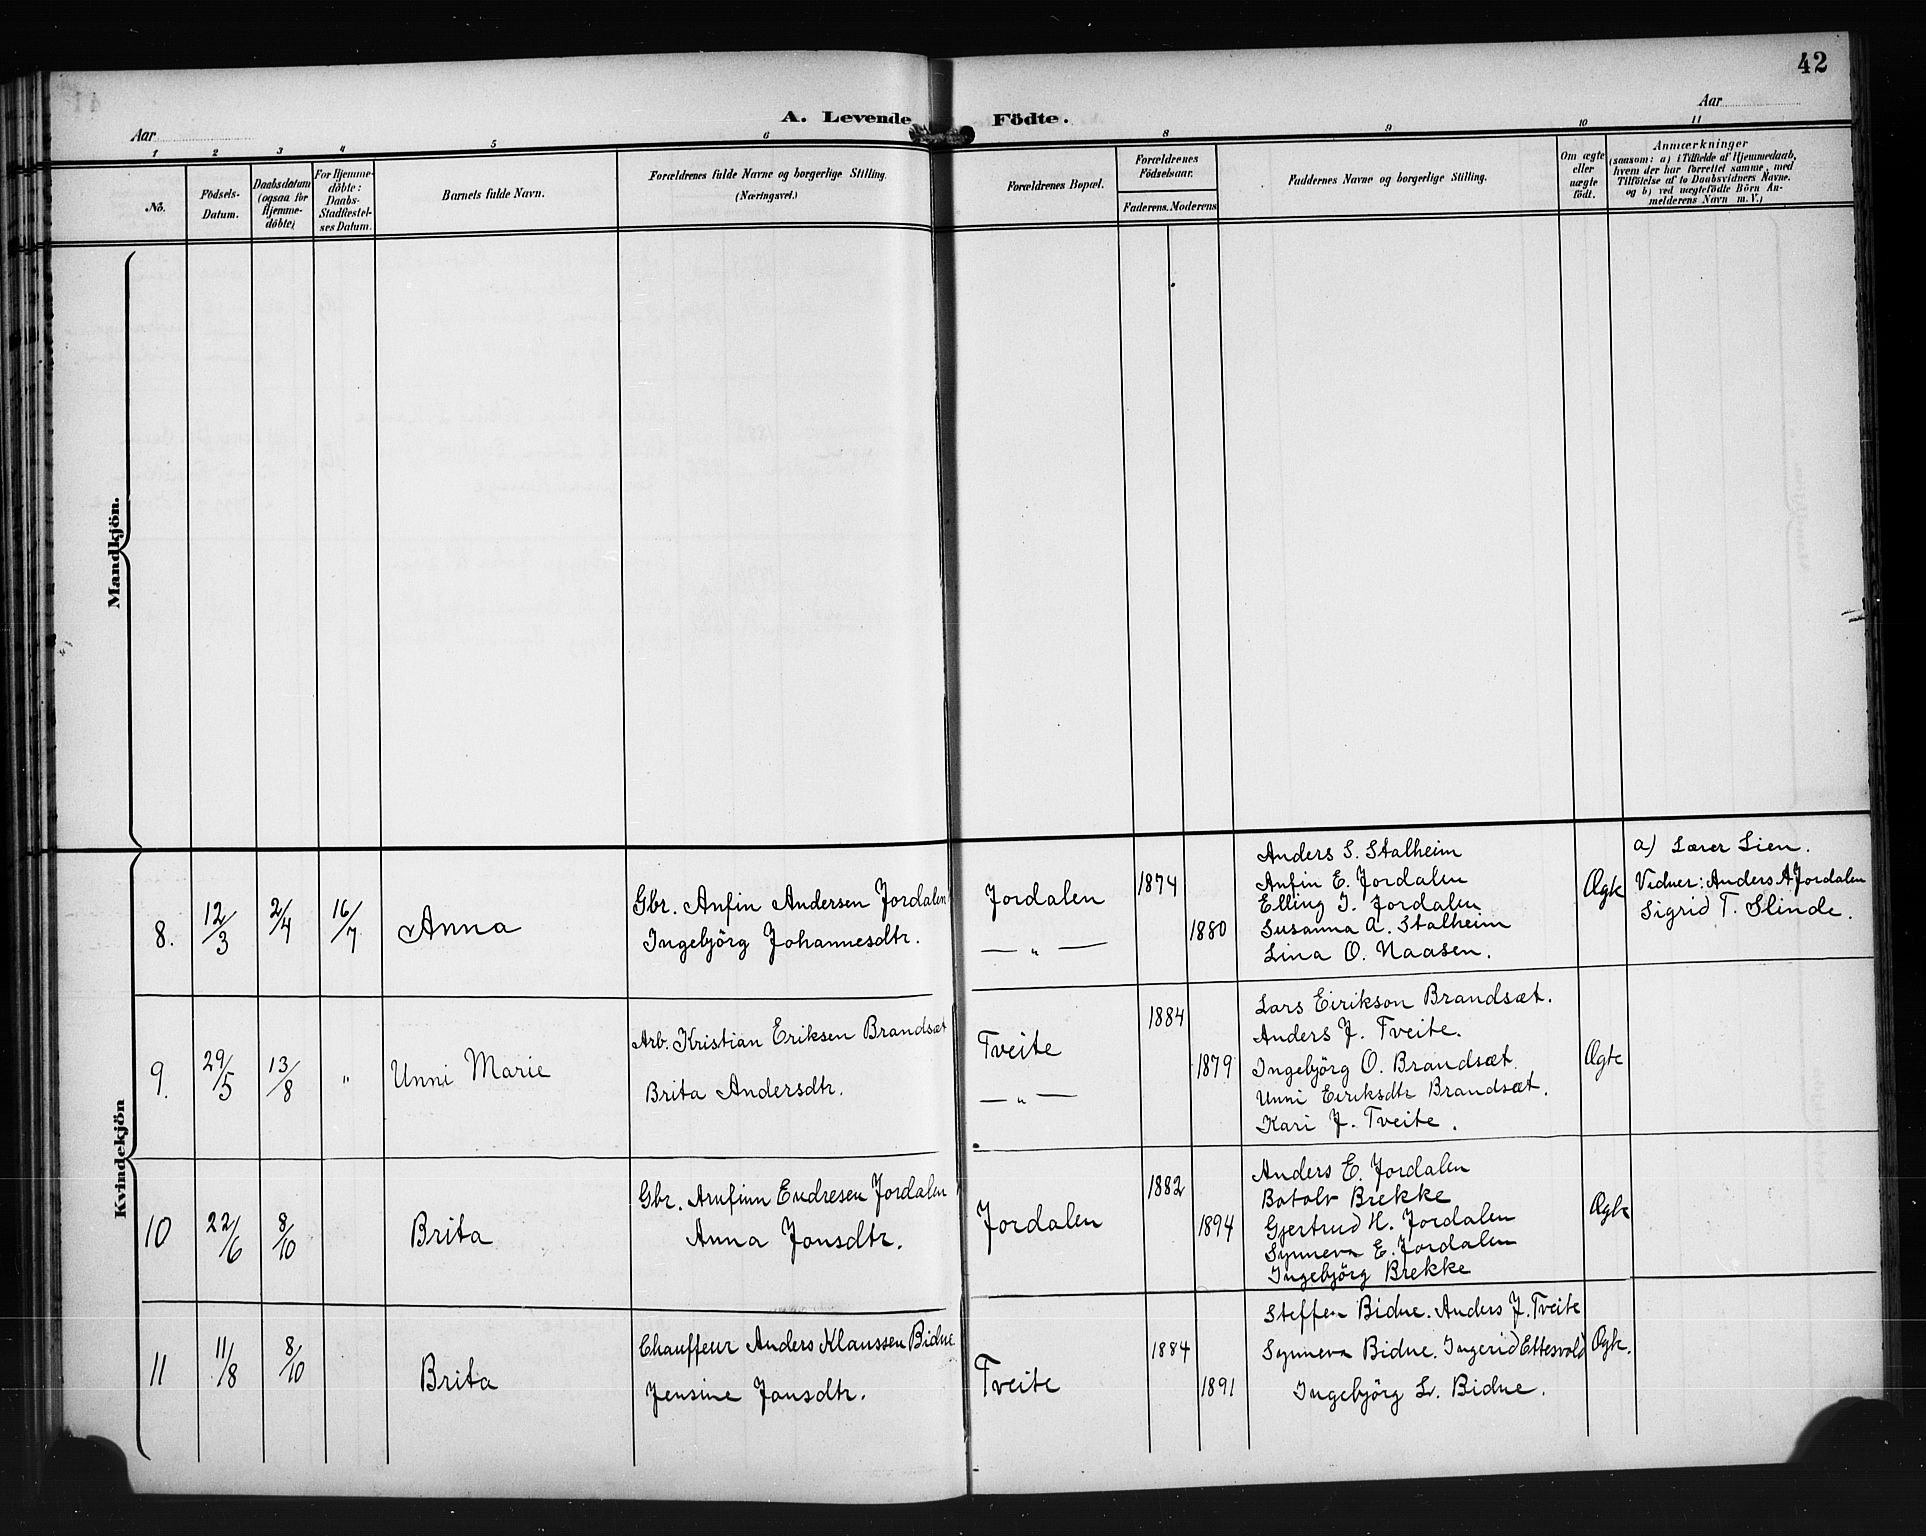 42
A. Levende Födte.
Aar
Aar
1 2 3 4 5 6 8 9 10 11
No.
Födsels-
Datum.
Daabsdatum
(ogsaa for
Hjemme-
döbte)
For Hjemme-
döbte:
Daabs-
Stadfæstel-
ses Datum.
Barnets fulde Navn.
Forældrenes fulde Navne og borgerlige Stilling.
(Næringsvei.)
Forældrenes Bopæl.
Forældrenes
Födselsaar.
Faderens. Moderens
Faddernes Navne og borgerlige Stilling.
Om ægte
eller
uægte
födt.
Anmærkninger
(saasom: a) i Tilfælde af Hjemmedaab,
hvem der har forrettet samme, med
Tilföielse af to Daabsvidners Navne.
og b) ved uægtefödte Börn An-
melderens Navn m. V.)
Mandkjön.
Kvindekjön
8. 12/3 2/4 16/7 Anna
Gbr. Anfin Andersen Jordalen
Ingebjörg Johannesdtr.
Jordalen
— " —
1874
1880
Anders S. Stalheim
Anfin E. Jordalen
Elling I. Jordalen
Susanna A. Stalheim
Lina O. Naasen.
Ægte
a) Lærer Lien.
Vidner: Anders A Jordalen
Sigrid T. Slinde.
9. 29/5 13/8 " Unni Marie
Arb. Kristian Eriksen Brandsæt
Brita Andersdtr.
Tveite
— " —
1884
1879
Lars Eirikson Brandsæt.
Anders J. Tveite.
Ingebjörg O. Brandsæt.
Unni Eiriksdtr Brandsæt.
Kari J. Tveite.
Ægte
10 22/6 8/10 Brita
Gbr. Arnfinn Endresen Jordalen
Anna Jonsdtr.
Jordalen
1882
1894
Anders E. Jordalen
Botolv Brekke
Gjertrud H. Jordalen
Synneva E. Jordalen
Ingebjörg Brekke
Ægte
11 11/8 8/10 Brita
Chauffeur Anders Klaussen Bidne
Jensine Jonsdtr.
Tveite
1884
1891
Steffen Bidne. Anders J. Tveite
Synneva Bidne. Ingerid Ettesvold
Ingebjörg L. Bidne.
Ægte.